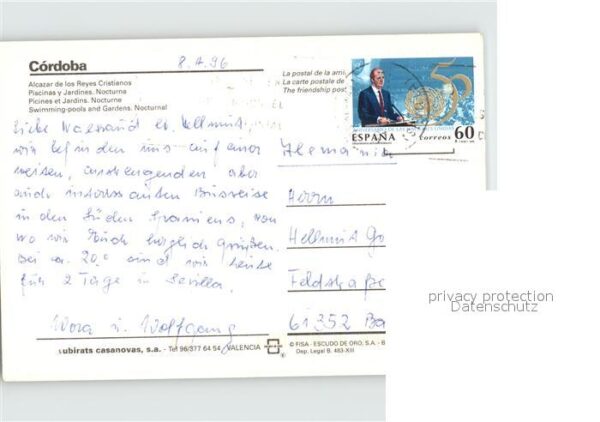 Córdoba
8.4.96
Alcazar de los Reyes Cristianos
Piacinas y Jardines. Nocturne
Picines et Jardins. Nocturne
Swimming-pools and Gardens. Nocturnal
La postal de la
La carte postale de
The friendship post
50
ESPAÑA
Correos
60
Liebe Waltraud u. Hellmut,
wir befinden uns auf einer
weiten, anstrengenden aber
auch interessanten Busreise
in den Süden Spaniens, von
wo wir Euch herzlich grüßen.
Bei ca. 20° sind wir heute
für 2 Tage in Sevilla.
Wolfgang
Alemania
Herrn
Hellmut Go
Feldstraße
61352 Ba
ubirats casanovas, s.a. - Tel 96/377 64 54 VALENCIA
© FISA - ESCUDO DE ORO, S.A. - B
Dep. Legal B. 483-XIII
privacy protection
Datenschutz